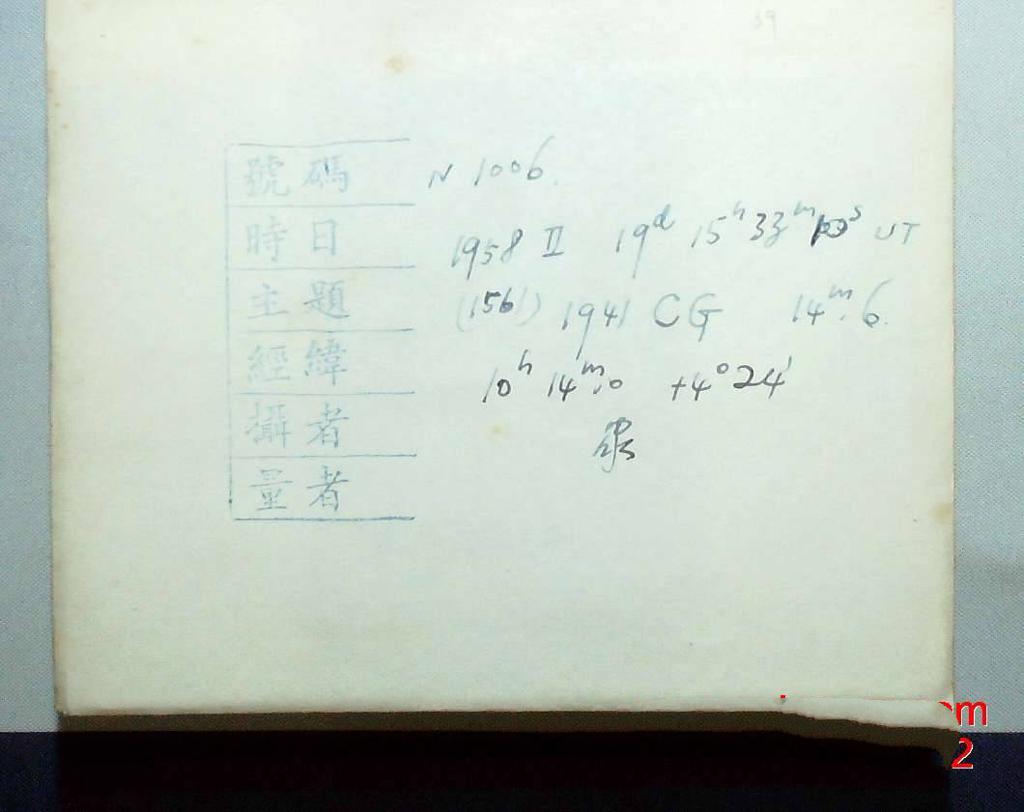 號碼 N 1006.
時日 1958 II 19ᵈ 15ʰ 33ᵐ ˢ UT
主題 (1561) 1941 CG 14ᵐ.6.
經緯 10ʰ 14ᵐ.0 +4°24'
攝者
量者